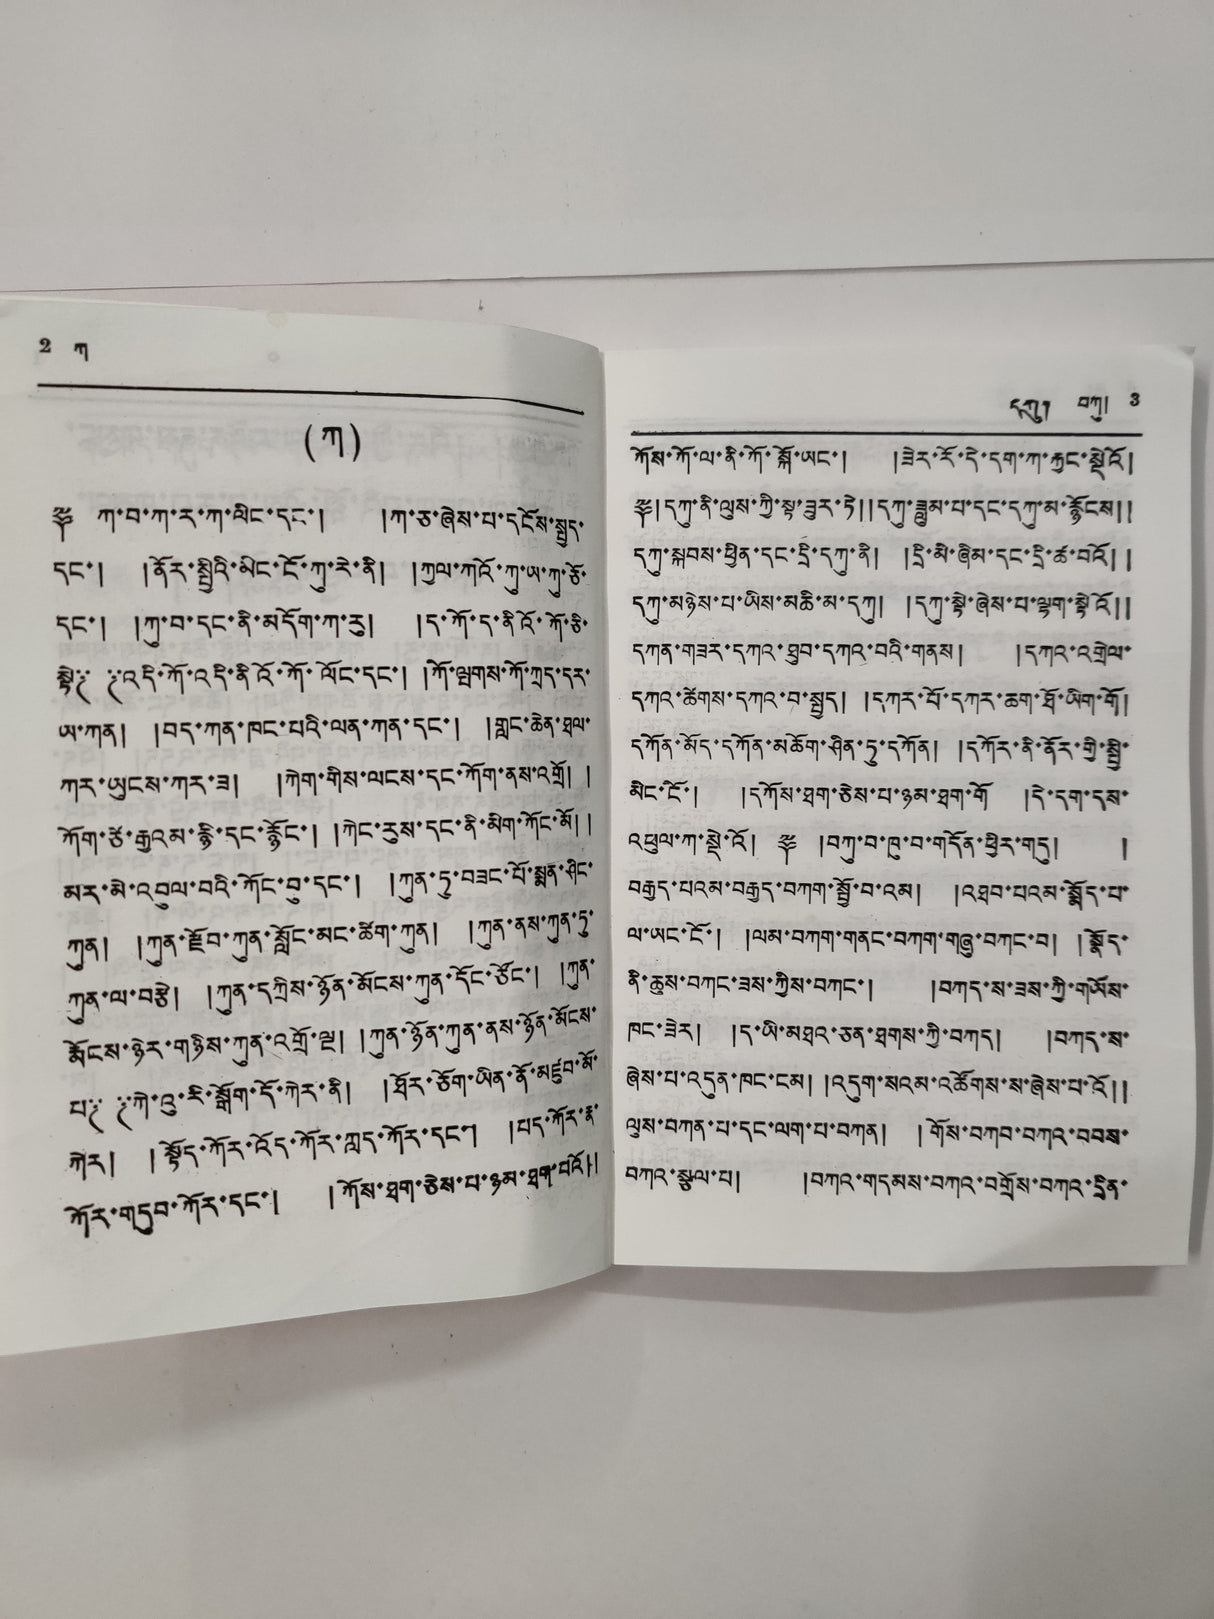 2 ཀ
(ཀ)
༈ ཀ་བ་ཀ་ར་ཀ་ལིང་དང་། །ཀ་ཅ་ཞེས་པ་དངོས་སྤྱད་
དང་། །ནོར་སྤྱིའི་མིང་ངོ་ཀུ་རེ་ནི། །ཀྱལ་ཀའོ་ཀུ་ཡ་ཀུ་ཅོ་
དང་། །ཀུ་བ་དང་ནི་མདོག་ཀ་རུ། །ད་ཀོ་ད་ནི་འོ་ཀོ་ཅི་
སྟེ༼ ༼འདི་ཀོ་འདི་ནི་འོ་ཀོ་ལོང་དང་། །ཀོ་ལྤགས་ཀོ་ཀྲད་དར་
ཡ་ཀན། །བད་ཀན་ཁང་པའི་ལན་ཀན་དང་། །གླང་ཆེན་ཐལ་
ཀར་ཡུངས་ཀར་ཟ། །ཀེག་གིས་ལངས་དང་ཀོག་ནས་འགྲོ། །
ཀོག་ཙེ་རྒྱའམ་རྙི་དང་རྙོང་། །ཀེང་རུས་དང་ནི་མིག་ཀོང་མོ། །
མར་མེ་འབུལ་བའི་ཀོང་བུ་དང་། །ཀུན་ཏུ་བཟང་པོ་སྨན་ཤིང་
ཀུན། །ཀུན་རྫོབ་ཀུན་སློང་མང་ཚིག་ཀུན། །ཀུན་ནས་ཀུན་ཏུ་
ཀུན་ལ་བརྩེ། །ཀུན་དཀྲིས་ཉོན་མོངས་ཀུན་དོང་ཙོང་། །ཀུན་
རྨོངས་ཉེར་གཉིས་ཀུན་འགྲོ་ལྔ། །ཀུན་ཉོན་ཀུན་ནས་ཉོན་མོངས་
པ༼ ༼ཀེ་འུ་རི་སྒྲོག་དོ་ཀེར་ནི། །ཐོར་ཅོག་ཡིན་ནོ་མཛུབ་མོ་
ཀེར། །སྟོད་ཀོར་འོད་ཀོར་ཀླད་ཀོར་དང་། །པད་ཀོར་རྣ་
ཀོར་གདུབ་ཀོར་དང་། །ཀོས་ཐག་ཅེས་པ་ཉམ་ཐག་པའོ། །
དཀུ། བཀུ། 3
ཀོས་ཀོ་ལ་ནི་ཀོ་སྐོ་ཡང་། །ཟེར་རོ་དེ་དག་ཀ་རྐྱང་སྡེའོ།
༈།དཀུ་ནི་ལུས་ཀྱི་སྟ་ཟུར་ཏེ།།དཀུ་ཟླུམ་པ་དང་དཀུ་མ་རྙོངས།།
དཀུ་སྐབས་ཕྱིན་དང་དྲི་དཀུ་ནི། །དྲི་མི་ཞིམ་དང་དྲི་ཚ་བའོ། །
དཀུ་མཉེས་པ་ཡིས་མཆི་མ་དཀུ། །དཀུ་སྟེ་ཞེས་པ་ལྟག་སྟེ་འོ།།
དཀན་གཟར་དཀའ་ཐུབ་དཀའ་བའི་གནས། །དཀའ་འགྲེལ་
དཀའ་ཚེགས་དཀའ་བ་སྤྱད། །དཀར་པོ་དཀར་ཆག་ཐོ་ཡིག་གོ།
དཀོན་མོད་དཀོན་མཆོག་ཤིན་ཏུ་དཀོན། །དཀོར་ནི་ནོར་གྱི་སྤྱི་
མིང་ངོ་། །དཀོས་ཐག་ཅེས་པ་ཉམ་ཐག་གོ །དེ་དག་དས་
འཕུལ་ཀ་སྡེ་འོ། ༈ །བཀུ་བ་ཁུ་བ་གདོན་ཕྱིར་གདུ། །
བརྒྱད་པའམ་བརྒྱད་བཀག་སྤྱོ་བ་འམ། །འཐབ་པའམ་སྨོད་པ་
ལ་ཡང་ངོ་། །ལམ་བཀག་གནང་བཀག་གཞུ་བཀང་བ། །སྣོད་
ནི་ཆུས་བཀང་ཟས་ཀྱིས་བཀང་། །བཀད་ས་ཟས་ཀྱི་གཡོས་
ཁང་ཟེར། །ད་ཡི་མཐའ་ཅན་ཐགས་ཀྱི་བཀད། །བཀད་ས་
ཞེས་པ་འདུན་ཁང་ངམ། །འདུག་སའམ་འཚོགས་ས་ཞེས་པ་འོ།།
ལུས་བཀན་པ་དང་ལག་པ་བཀན། །གོས་བཀབ་བཀའ་བབས་
བཀའ་སྩལ་པ། །བཀའ་གདམས་བཀའ་བགྲོས་བཀའ་དྲིན་